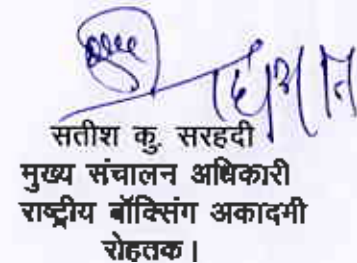 सतीश कु. सरहदी
मुख्य संचालन अधिकारी
राष्ट्रीय बॉक्सिंग अकादमी
रोहतक।